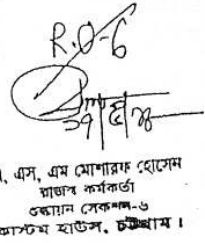 R.O-6
এস, এম মোশারফ হোসেন
রাজস্ব কর্মকর্তা
শুল্কায়ন সেকশন-৬
কাস্টম হাউস, চট্টগ্রাম।